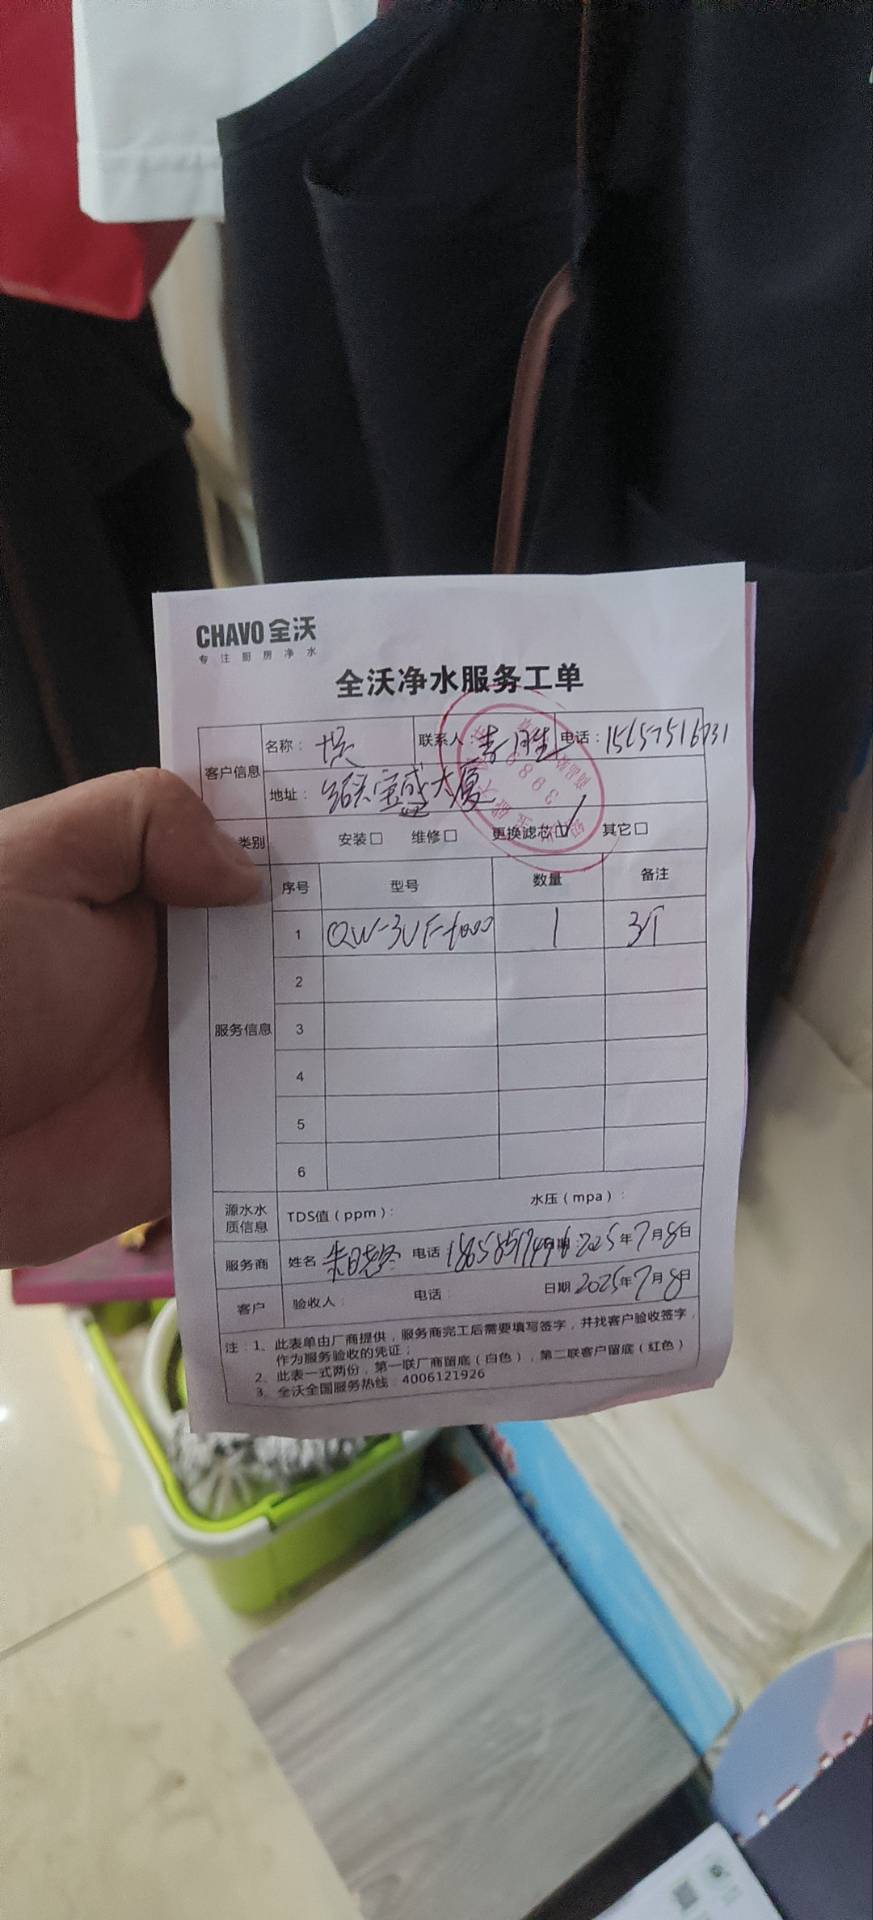 CHAVO 全沃
专注厨房净水
全沃净水服务工单
客户信息 名称： 联系人： 电话：
地址： 宝盛大厦
类别 安装□ 维修□ 更换滤芯☑ 其它□
服务信息 序号 型号 数量 备注
1 QW-3UF-1000 1 3个
2
3
4
5
6
源水水质信息 TDS值（ppm）： 水压（mpa）：
服务商 姓名 电话 2025年7月8日
客户 验收人： 电话： 日期 2025年7月8日
注：1、此表单由厂商提供，服务商完工后需要填写签字，并找客户验收签字，
作为服务验收的凭证；
2、此表一式两份，第一联厂商留底（白色），第二联客户留底（红色）
3、全沃全国服务热线：4006121926